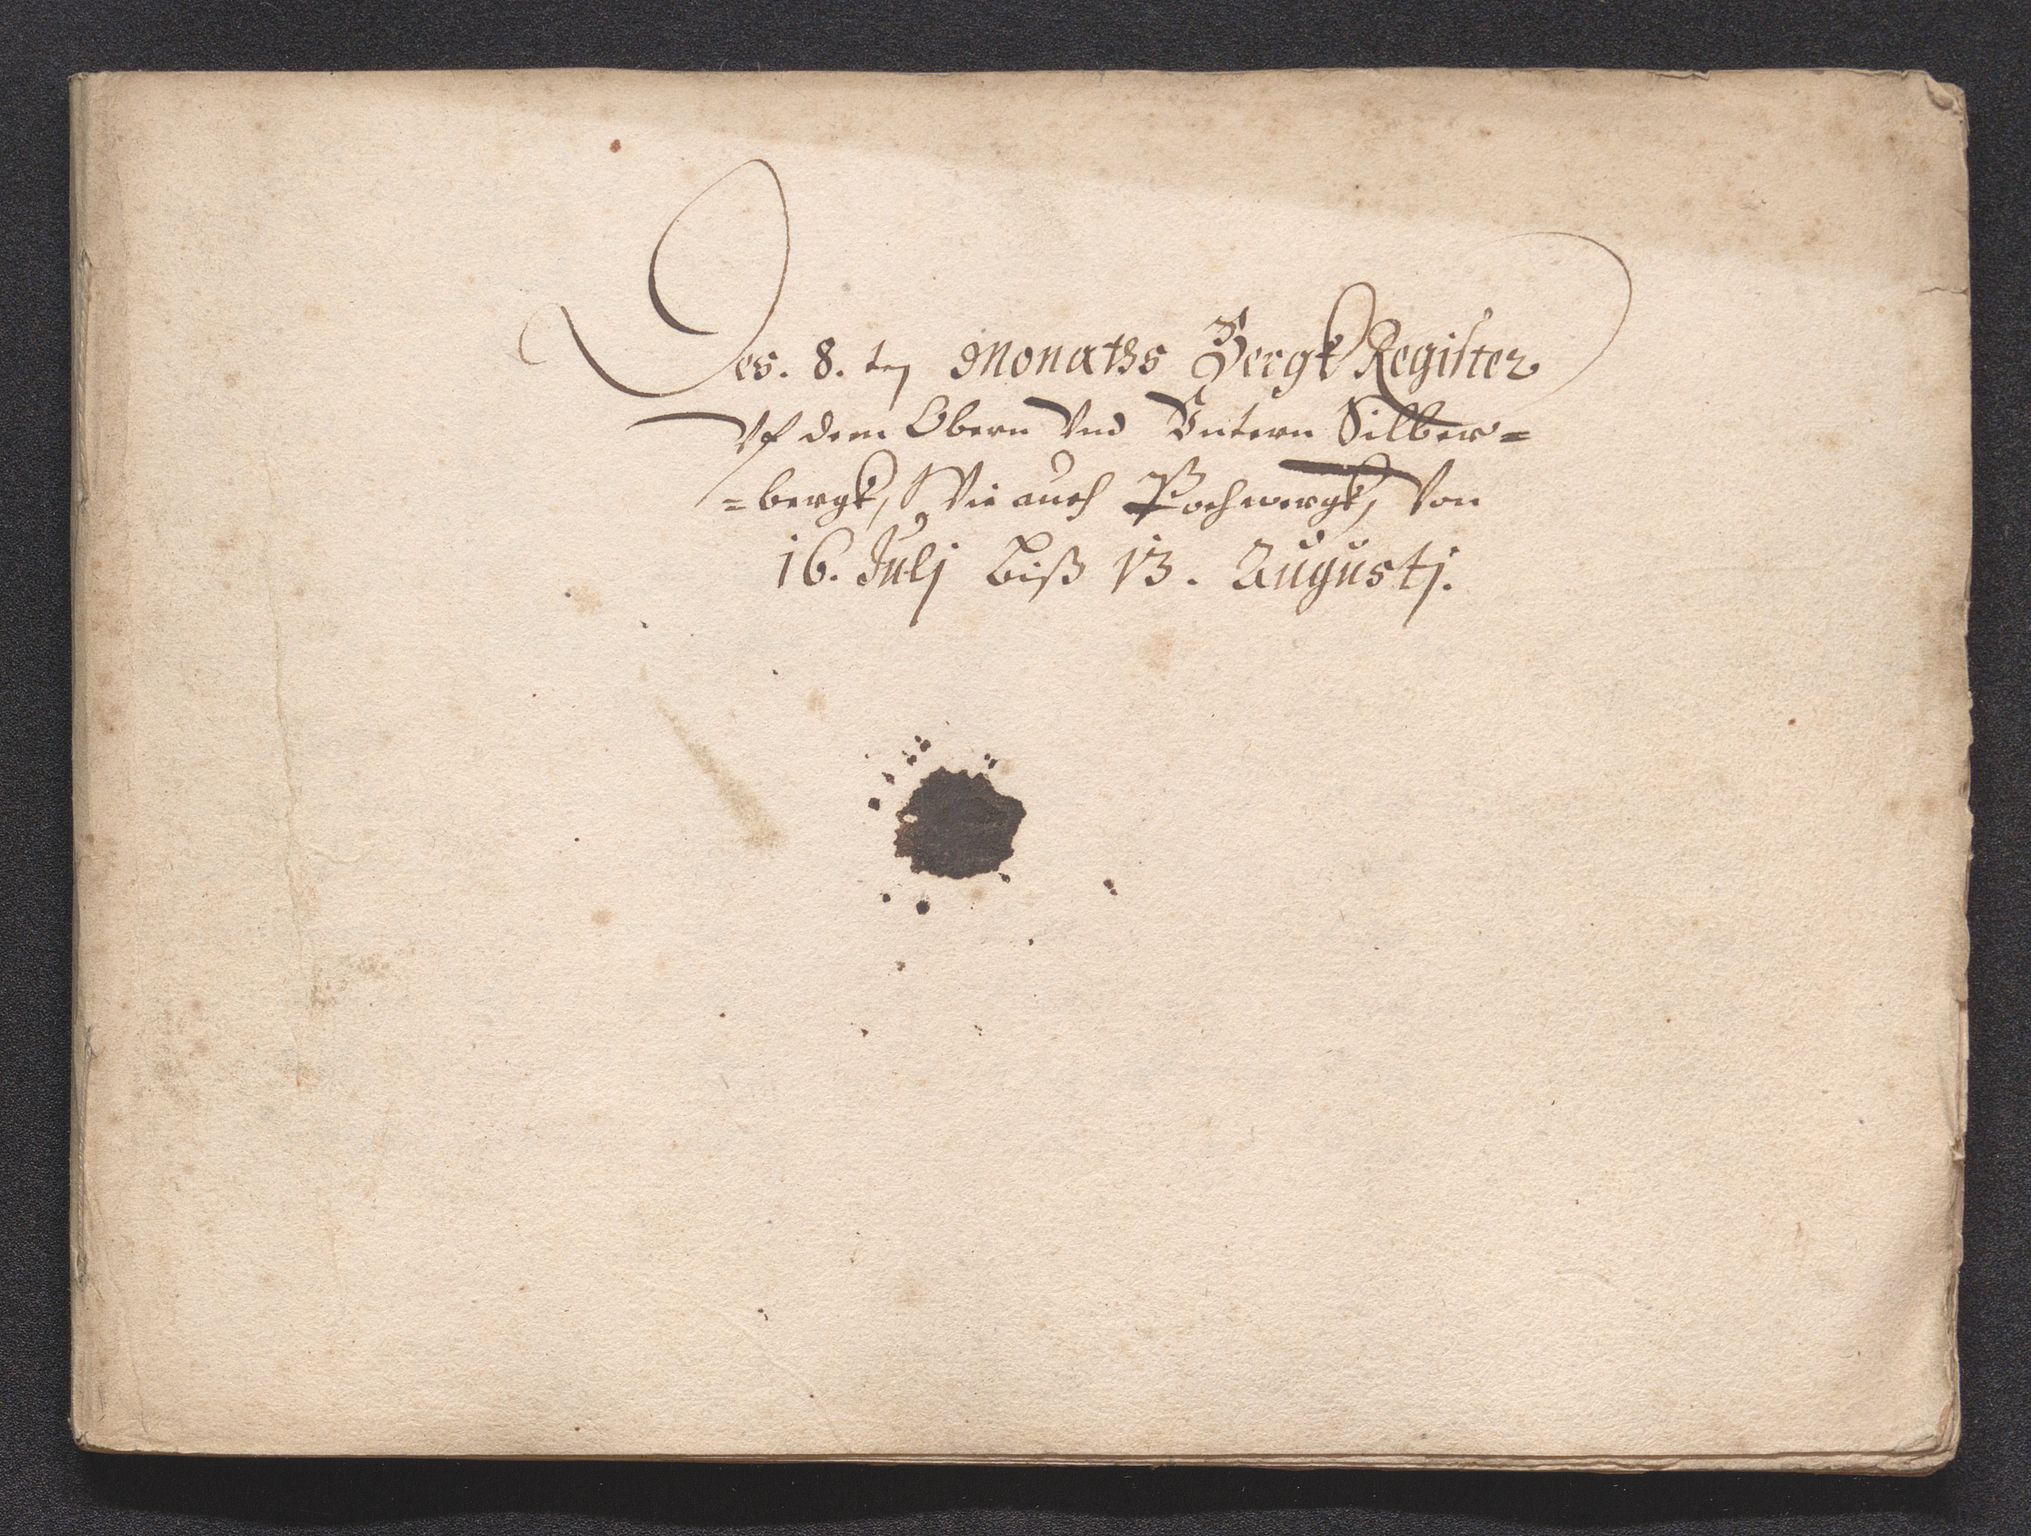 Des. 8. ten Monaths Bergk Register
Vf dem Obern Vnd Vntern Silber=
=bergk, Wie auch Pochwergk, Von
16. Julj Biß 13. Augustj.